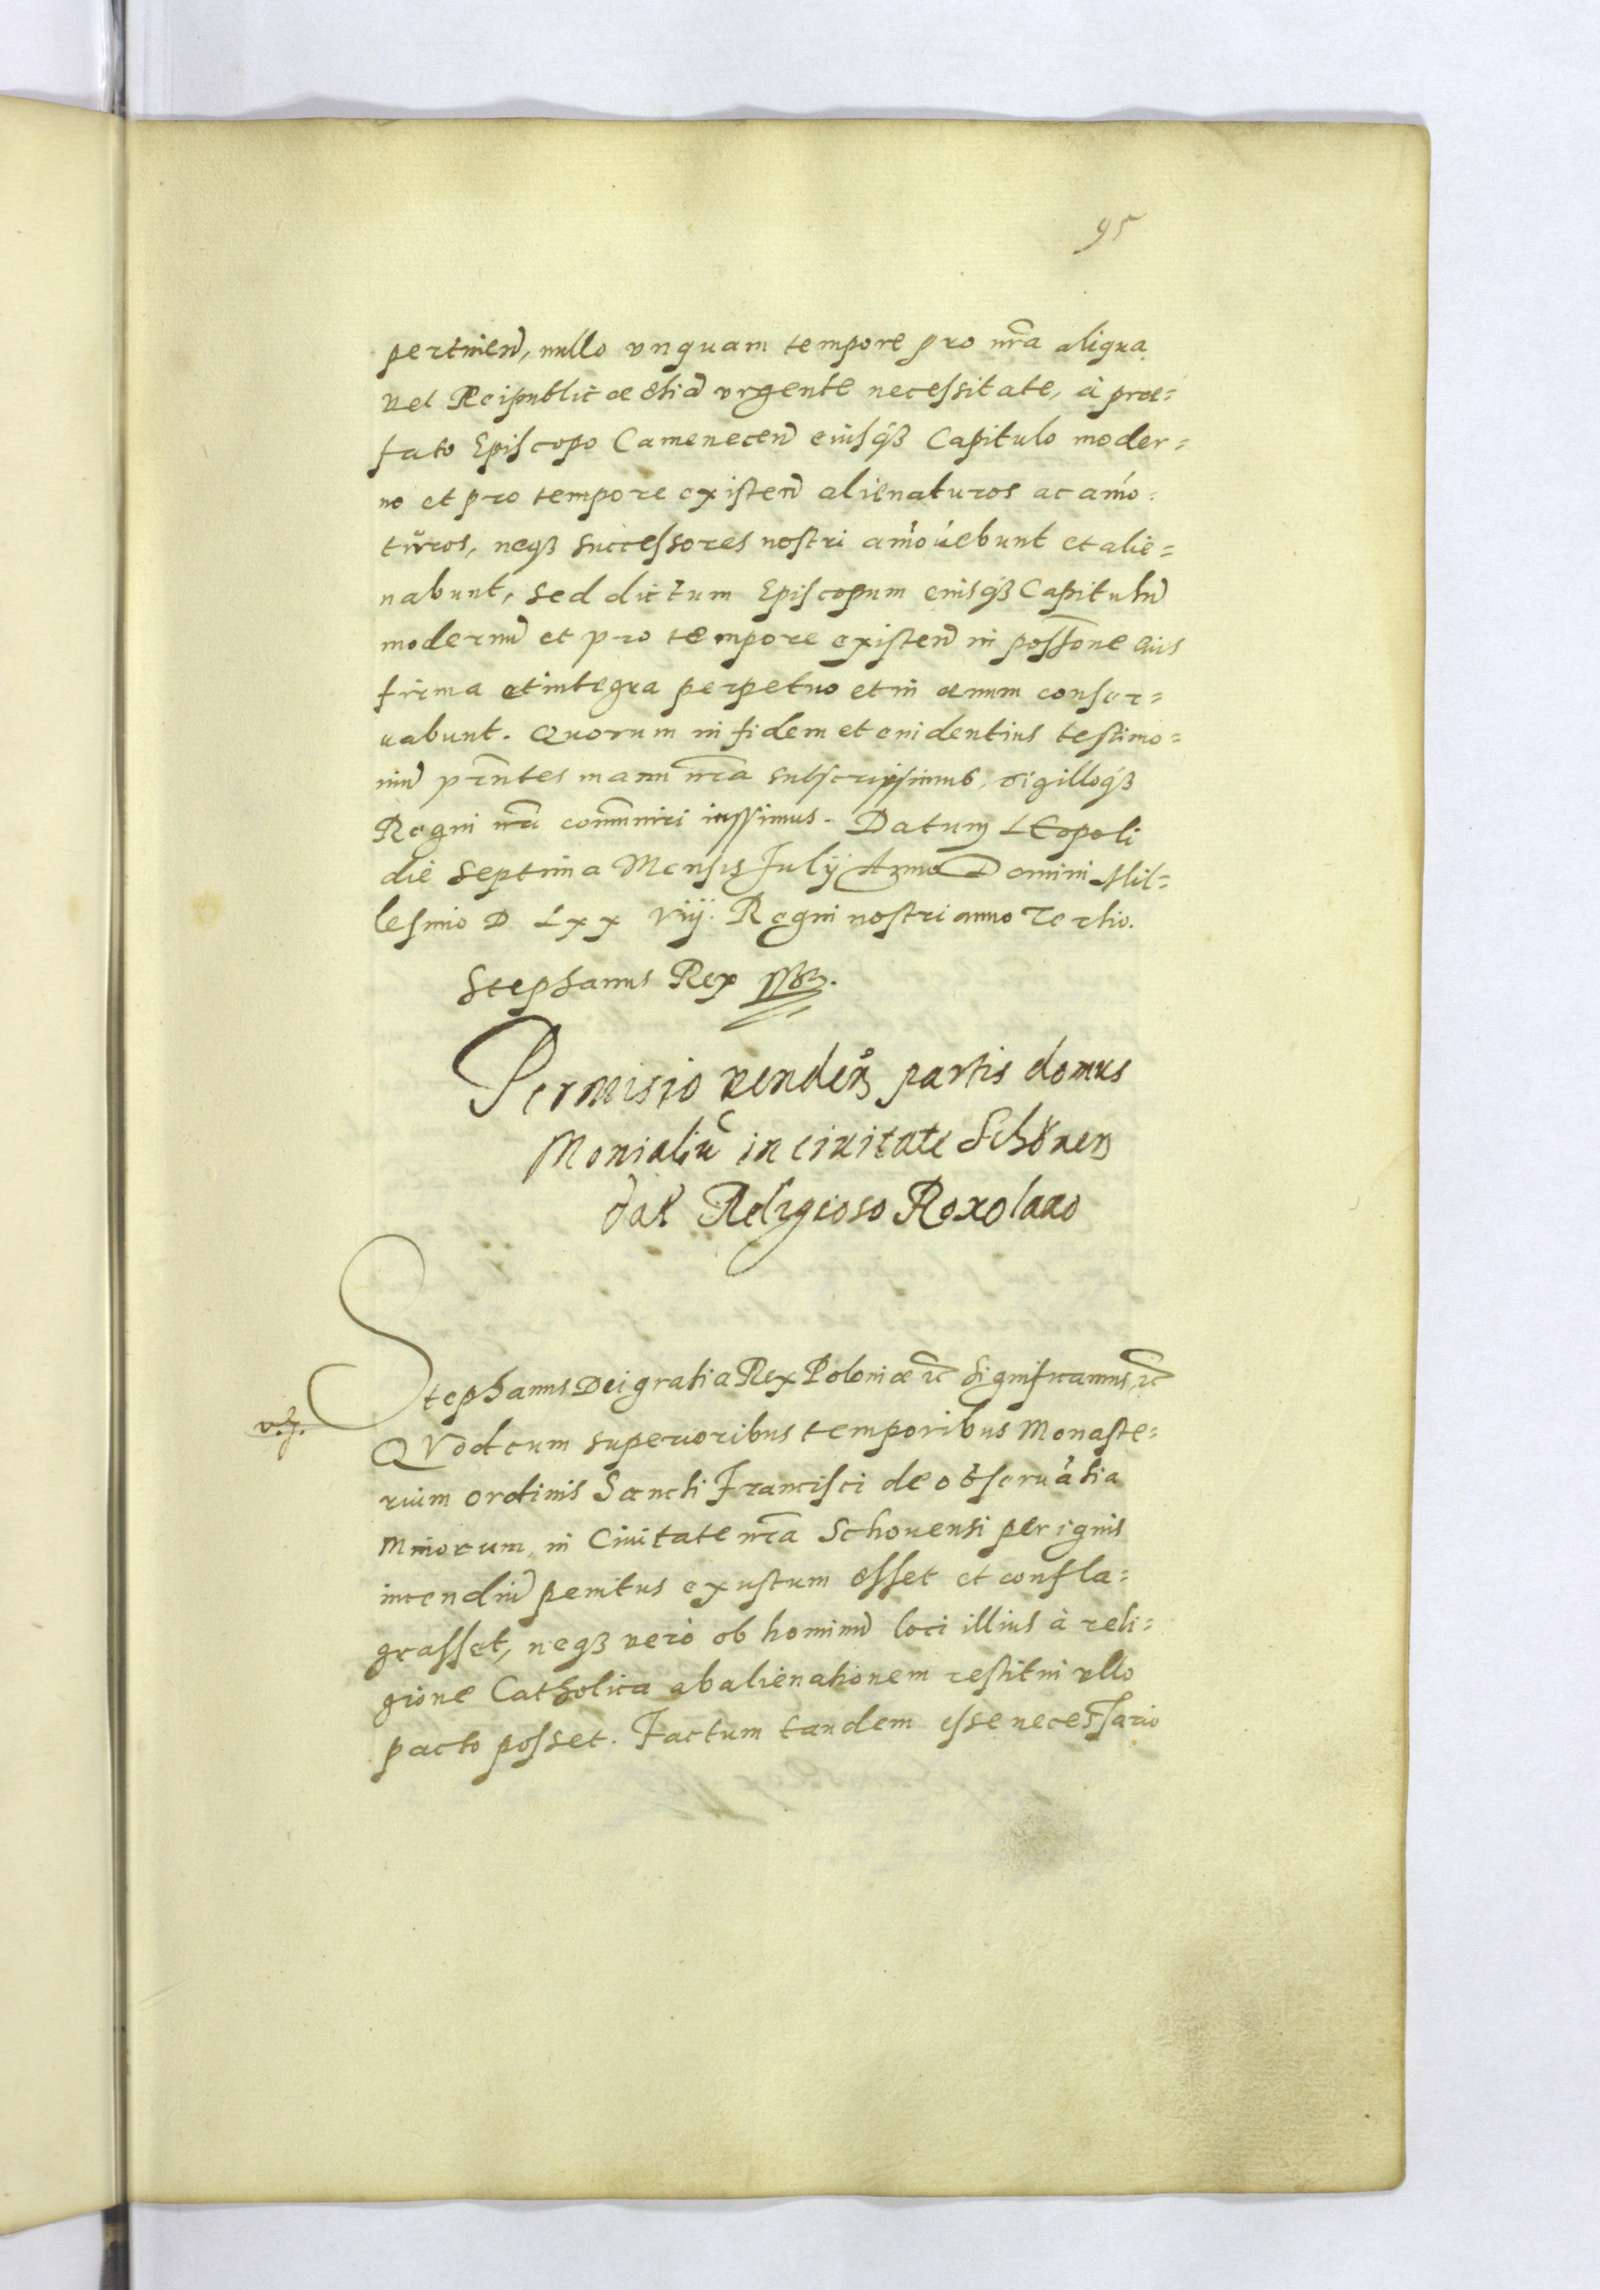 95
pertinen̄, nullo vnquam tempore pro nr̄a aliqua
vel Reipublicæ etiā vrgente necessitate, à præ-
fato Episcopo Camenecen̄ eiusq3 Capitulo moder-
no et pro tempore existen̄ alienaturos ac amo-
turos, neq3 successores nostri amouebunt et alie-
nabunt, sed dictum Episcopum eiusq3 Capitulū
modernū et pro tempore existen̄ in possōne eius
firma et integra perpetuo et in æuum conser-
uabunt. Quorum in fidem et euidentius testimo-
niū pn̄tes manu nr̄a subscripsimus, sigilloq3
Regni nr̄i com̄uniri iussimus. Datum LEopoli
die septima Mensis Julÿ Anno Domini Mil-
lesimo D Lxx viij. Regni nostri anno Tertio.
Stephanus Rex
Permisio venden̄ partis domus
Monialiū in ciuitate Schonen
dat Religioso Roxolano
Stephanus Dei gratia Rex Poloniæ rc̄ Significamus, rc̄
v.z.
QVod cum superioribus temporibus Monaste-
rium ordinis Sancti Francisci de obseruātia
Minorum, in Ciuitate nr̄a Schouensi per ignis
incendiū penitus exustum esset et confla-
grasset, neq3 vero ob hominū loci illius à reli-
gione Catholica abalienationem restitui vllo
pacto posset. Factum tandem esse necessario